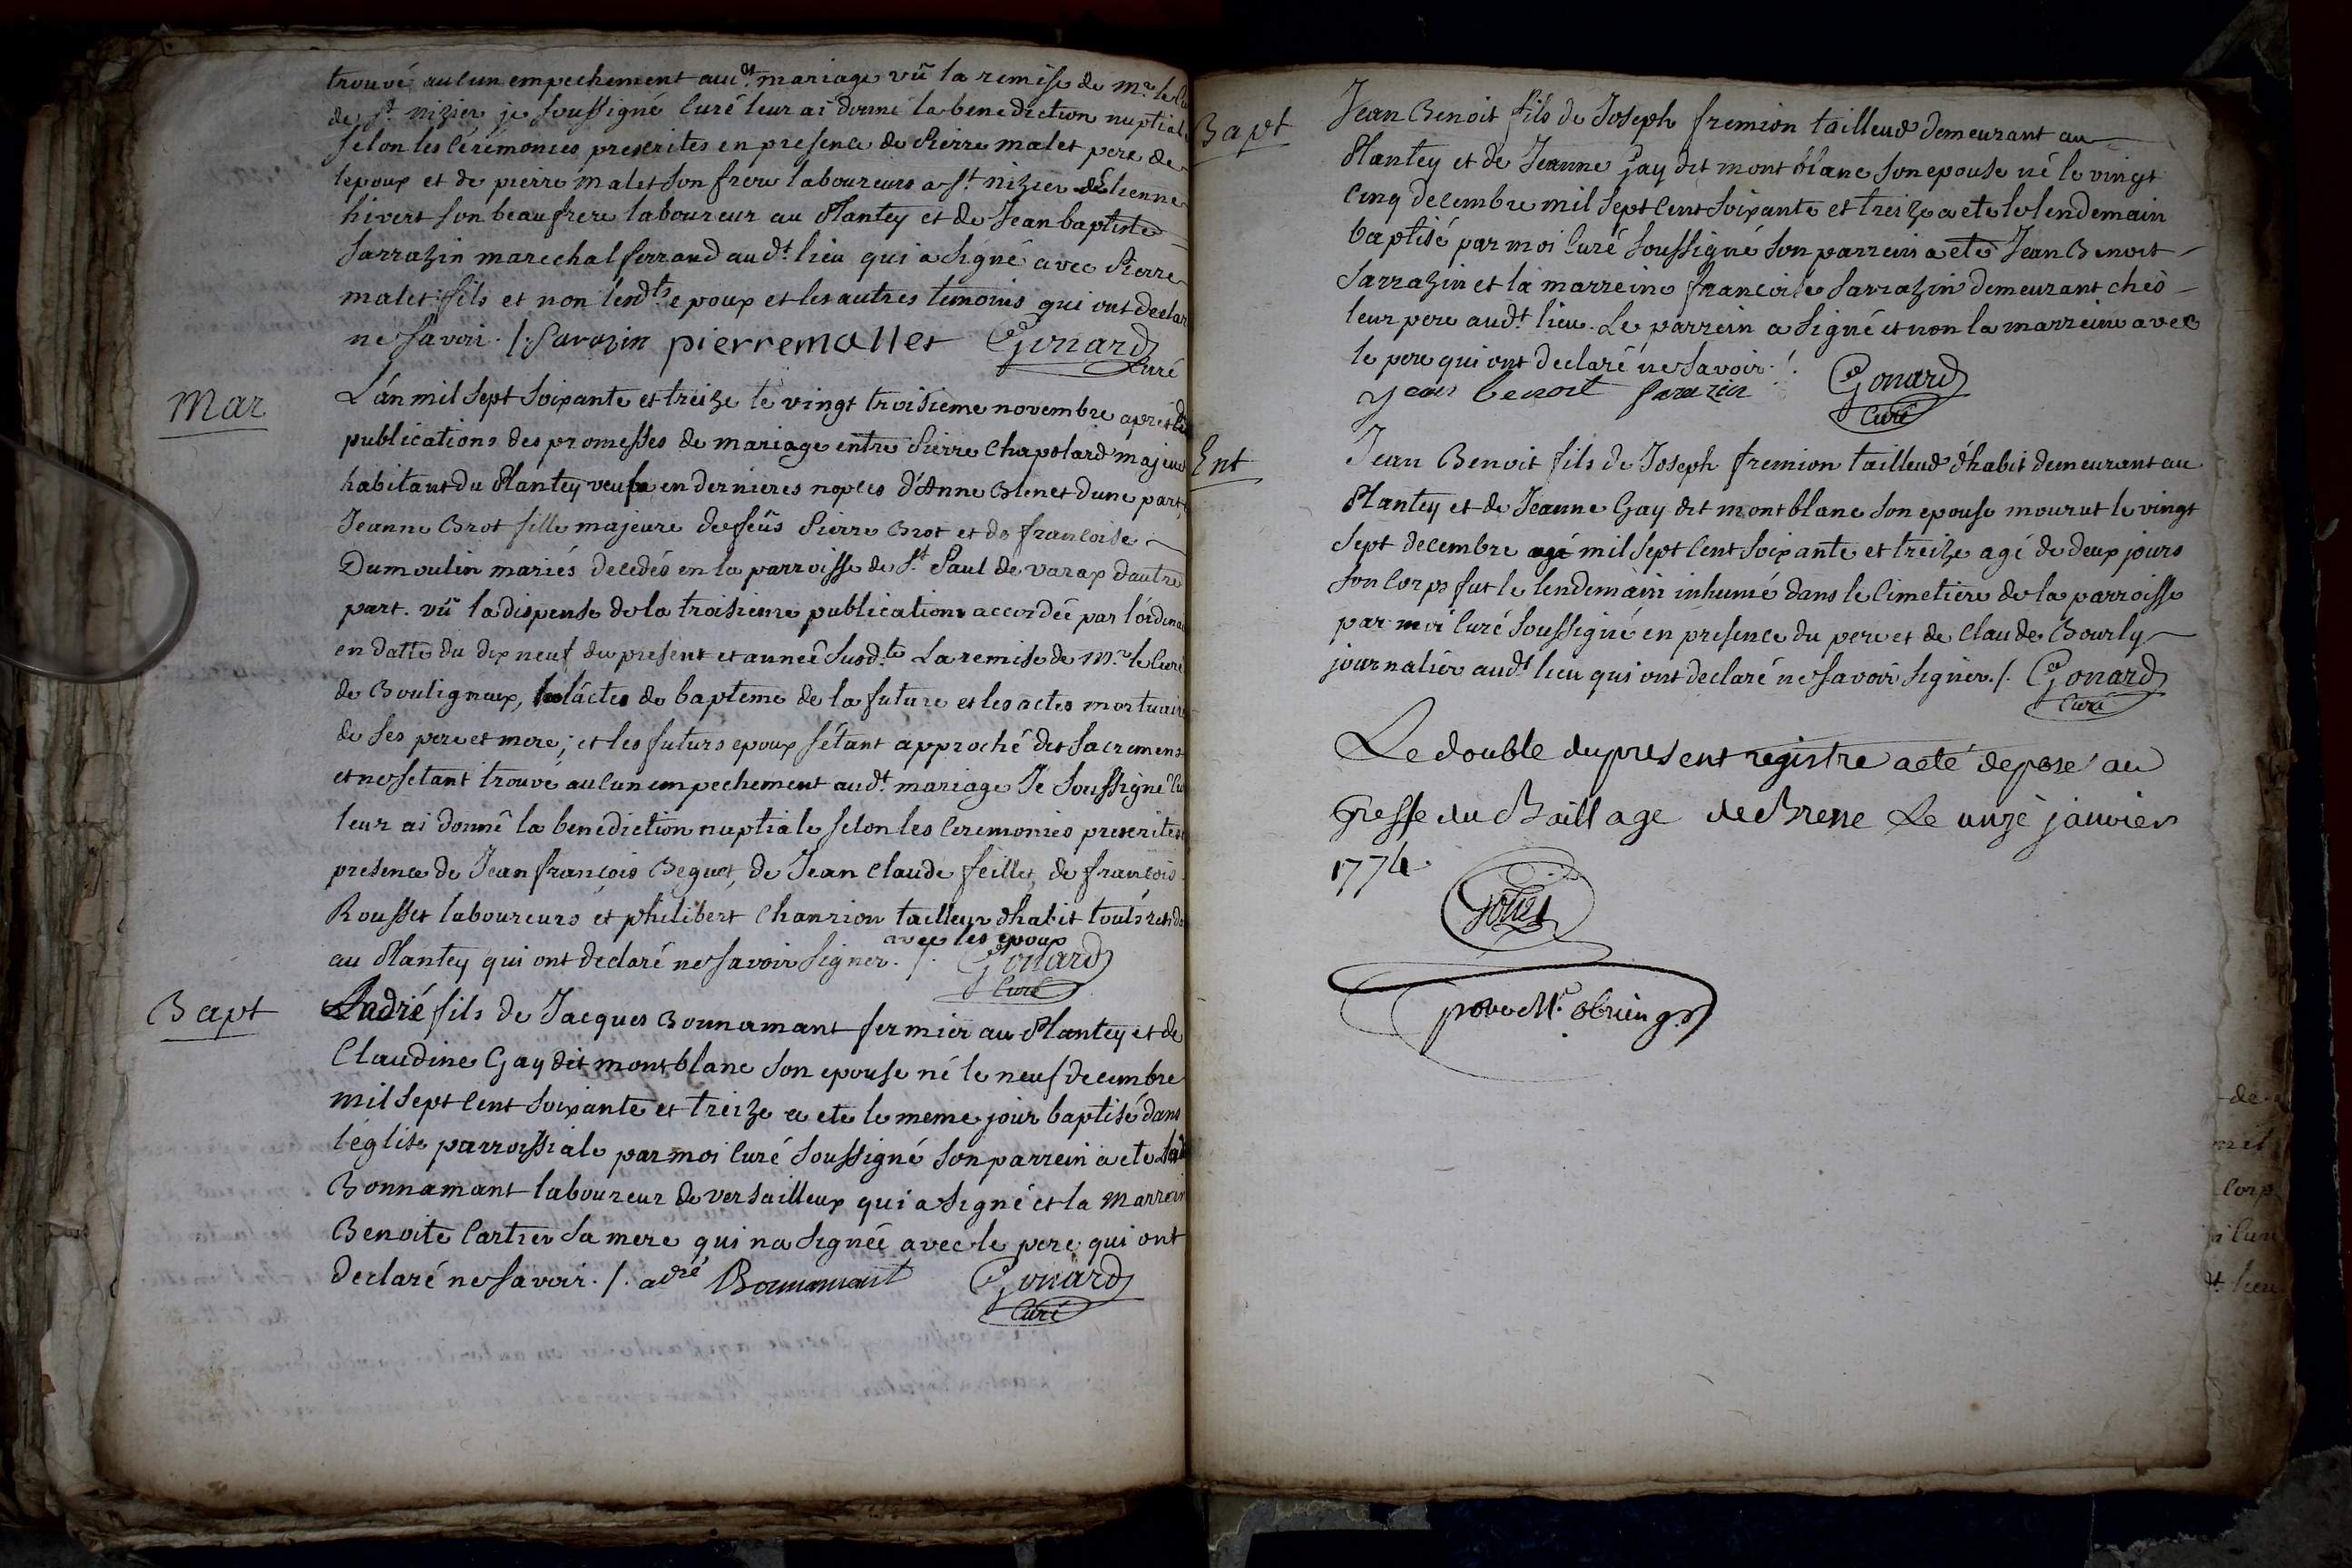 trouvé aucun empechement aud.t mariage vû la remise de m.re le
de S.t nizier je soussigné curé leur ai donné la benediction nuptial
selon les cérémonies prescrites en presence de Pierre malet pere de
lepoux et de pierre malet son frere laboureurs a S.t nizier
hivert son beaufrere laboureur au Plantey et de Jean baptiste
Sarrazin marechal ferrand aud.t lieu qui a signé avec Pierre
malet fils et non lesd.ts epoux et les autres temoins qui ont declar
ne savoir ./. Sarazin pierremallet Gonard
curé
Mar
L'an mil sept soixante et treize le vingt troisieme novembre après
publications des promesses de mariage entre Pierre Chapolard majeur
habitant du Plantey veuf en dernieres nopces d'Anne Blenet dune part
Jeanne Brot fille majeure de feûs Pierre Brot et de francoise
Dumoulin mariés decedés en la parroisse de S.t Paul de varax dautre
part. vû la dispense de la troisieme publication accordée par l'ordina
en datte du dix neuf du present et anneé susd.te La remise de M.re le Curé
de Bouligneux, l'actes de bapteme de la future et les actes mortuair
de ses pere et mere; et les futurs epoux s'étant approché des sacremens
et ne setant trouvé aucun empechement aud.t mariage Je soussigné Cu
leur ai donné la benediction nuptiale selon les ceremonies prescrites
presence de Jean françois Beguet, de Jean Claude feillet, de francois
Rousset laboureurs et philibert Chanrion tailleur dhabit tous
avec les epoux
au Plantey qui ont declaré ne savoir signer. /. Gonard
Curé
Bapt
André fils de Jacques Bonnamant fermier au Plantey et de
Claudine Gay dit montblanc son epouse né le neuf decembre
mil sept cent soixante et treize a ete le meme jour baptisé dans
l'église parroissiale par moi curé soussigné son parrein a ete
Bonnamant laboureur de versailleux qui a signé et la marrein
Benoite Cartier sa mere qui na signée avec le pere qui ont
declaré ne savoir. /. adré Bonnamant Gonard
Curé
Bapt
Jean Benoit fils de Joseph fremion tailleur demeurant au
Plantey et de Jeanne Gay dit mont blanc son epouse né le vingt
cinq decembre mil sept cent soixante et treize a ete le lendemain
baptisé par moi curé soussigné son parrein a eté Jean Benoit
Sarrazin et la marreine francoise Sarrazin demeurant chés
leur pere aud.t lieu. Le parrein a signé et non la marreine avec
le pere qui ont declaré ne savoir. /. Gonard
Curé
jean benoit sarazin
Ent
Jean Benoit fils de Joseph fremion tailleur d'habit demeurant au
Plantey et de Jeanne Gay dit montblanc son epouse mourut le vingt
sept decembre agé mil sept cent soixante et treize agé de deux jours
son corps fut le lendemain inhumé dans le cimetiere de la parroisse
par moi curé soussigné en presence du pere et de Claude Bourly
journalier aud.t lieu qui ont declaré ne savoir signer. /. Gonard
Curé
Le double du present registre a eté deposé au
Greffe du Baillage de Bresse Le unze janvier
1774.
pour M.r
de
mil
corp
curé
lieu